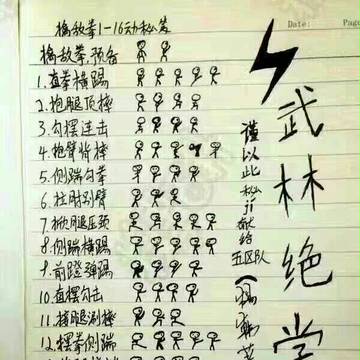 Date:
Page
擒敌拳1-16动秘笈
擒敌拳,预备
1.直拳横踢
2.抱腿顶摔
3.勾摆连击
4.抱臂背摔
5.侧踹勾拳
6.拉肘别臂
7.掀腿压颈
8.侧踹横踢
9.前蹬弹踢
10.直摆勾击
11.接腿涮摔
12.摆拳侧踹
武林绝学
谨以此秘ji献给
五区队